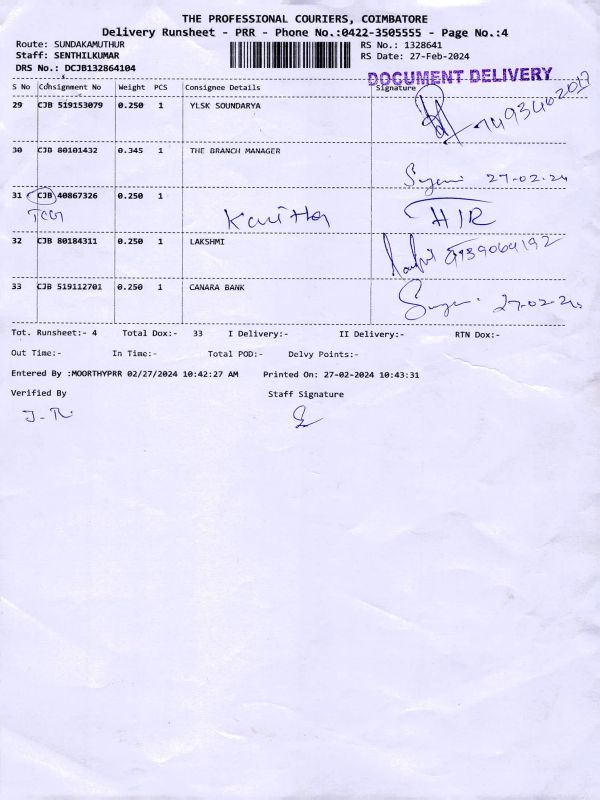 THE PROFESSIONAL COURIERS, COIMBATORE
Delivery Runsheet - PRR - Phone No.:0422-3505555 - Page No.:4
Route: SUNDAKAMUTHUR
RS No.: 1328641
Staff: SENTHILKUMAR
RS Date: 27-Feb-2024
DRS No.: DCJB132864104
DOCUMENT DELIVERY
S No Consignment No Weight PCS Consignee Details Signature
29 CJB 519153079 0.250 1 YLSK SOUNDARYA
30 CJB 80101432 0.345 1 THE BRANCH MANAGER
27-02-24
31 CJB 40867326 0.250 1
Kavitha
H/R
32 CJB 80184311 0.250 1 LAKSHMI
33 CJB 519112701 0.250 1 CANARA BANK
27-02-24
Tot. Runsheet:- 4 Total Dox:- 33 I Delivery:- II Delivery:- RTN Dox:-
Out Time:- In Time:- Total POD:- Delvy Points:-
Entered By :MOORTHYPRR 02/27/2024 10:42:27 AM Printed On: 27-02-2024 10:43:31
Verified By Staff Signature